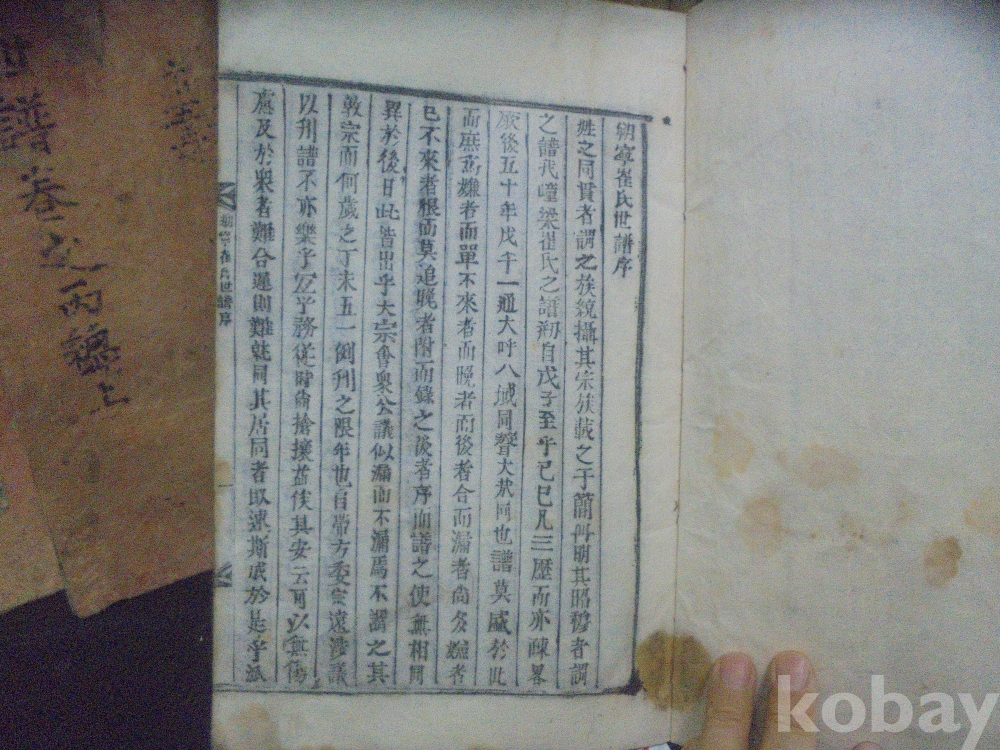 朝寧崔氏世譜序
姓之同貫者謂之族統攝其宗族載之于簡冊明其昭穆者謂
之譜我㠉梁崔氏之譜刱自戊子至乎己巳凡三歷而亦踈畧
厥後五十年戊午一通大呼八域同聲大哉同也譜莫盛於此
而庶爲嫌者而單不來者而晩者而後者合而漏者尙多嫌者
已不來者根而莫追晩者附而錄之後者序而譜之使無相同
異於後日此皆出乎大宗會衆公議似漏而不漏焉不謂之其
敦宗而何歲之丁未五一倒刋之限年也自帶方委官遠涉議
以刋譜不亦樂乎宜乎務從時尙搶攘葢俟其安云可以無傷
處及於衆者難合遲則難就同其居同者取速斯成於是乎派
朝寧崔氏世譜序
世譜卷之丙穆上
kobay